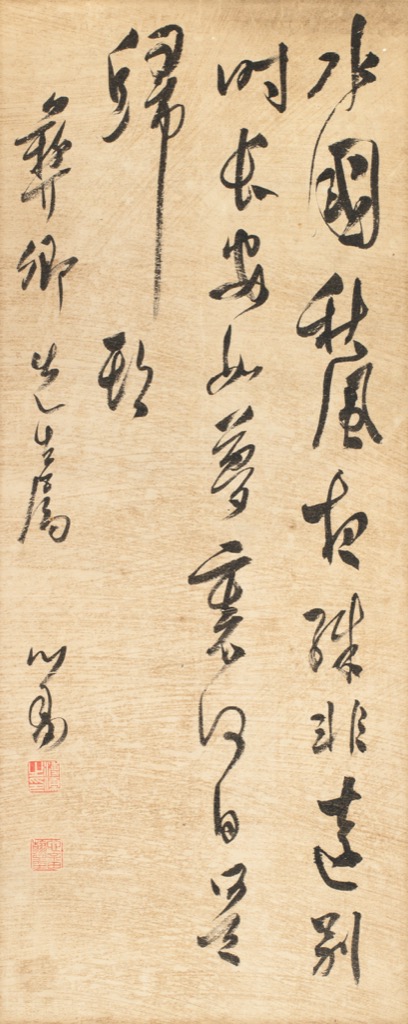 水國秋風夜殊非遠別
時長安如夢裏何日是
歸期
彝卿先生屬
心畬